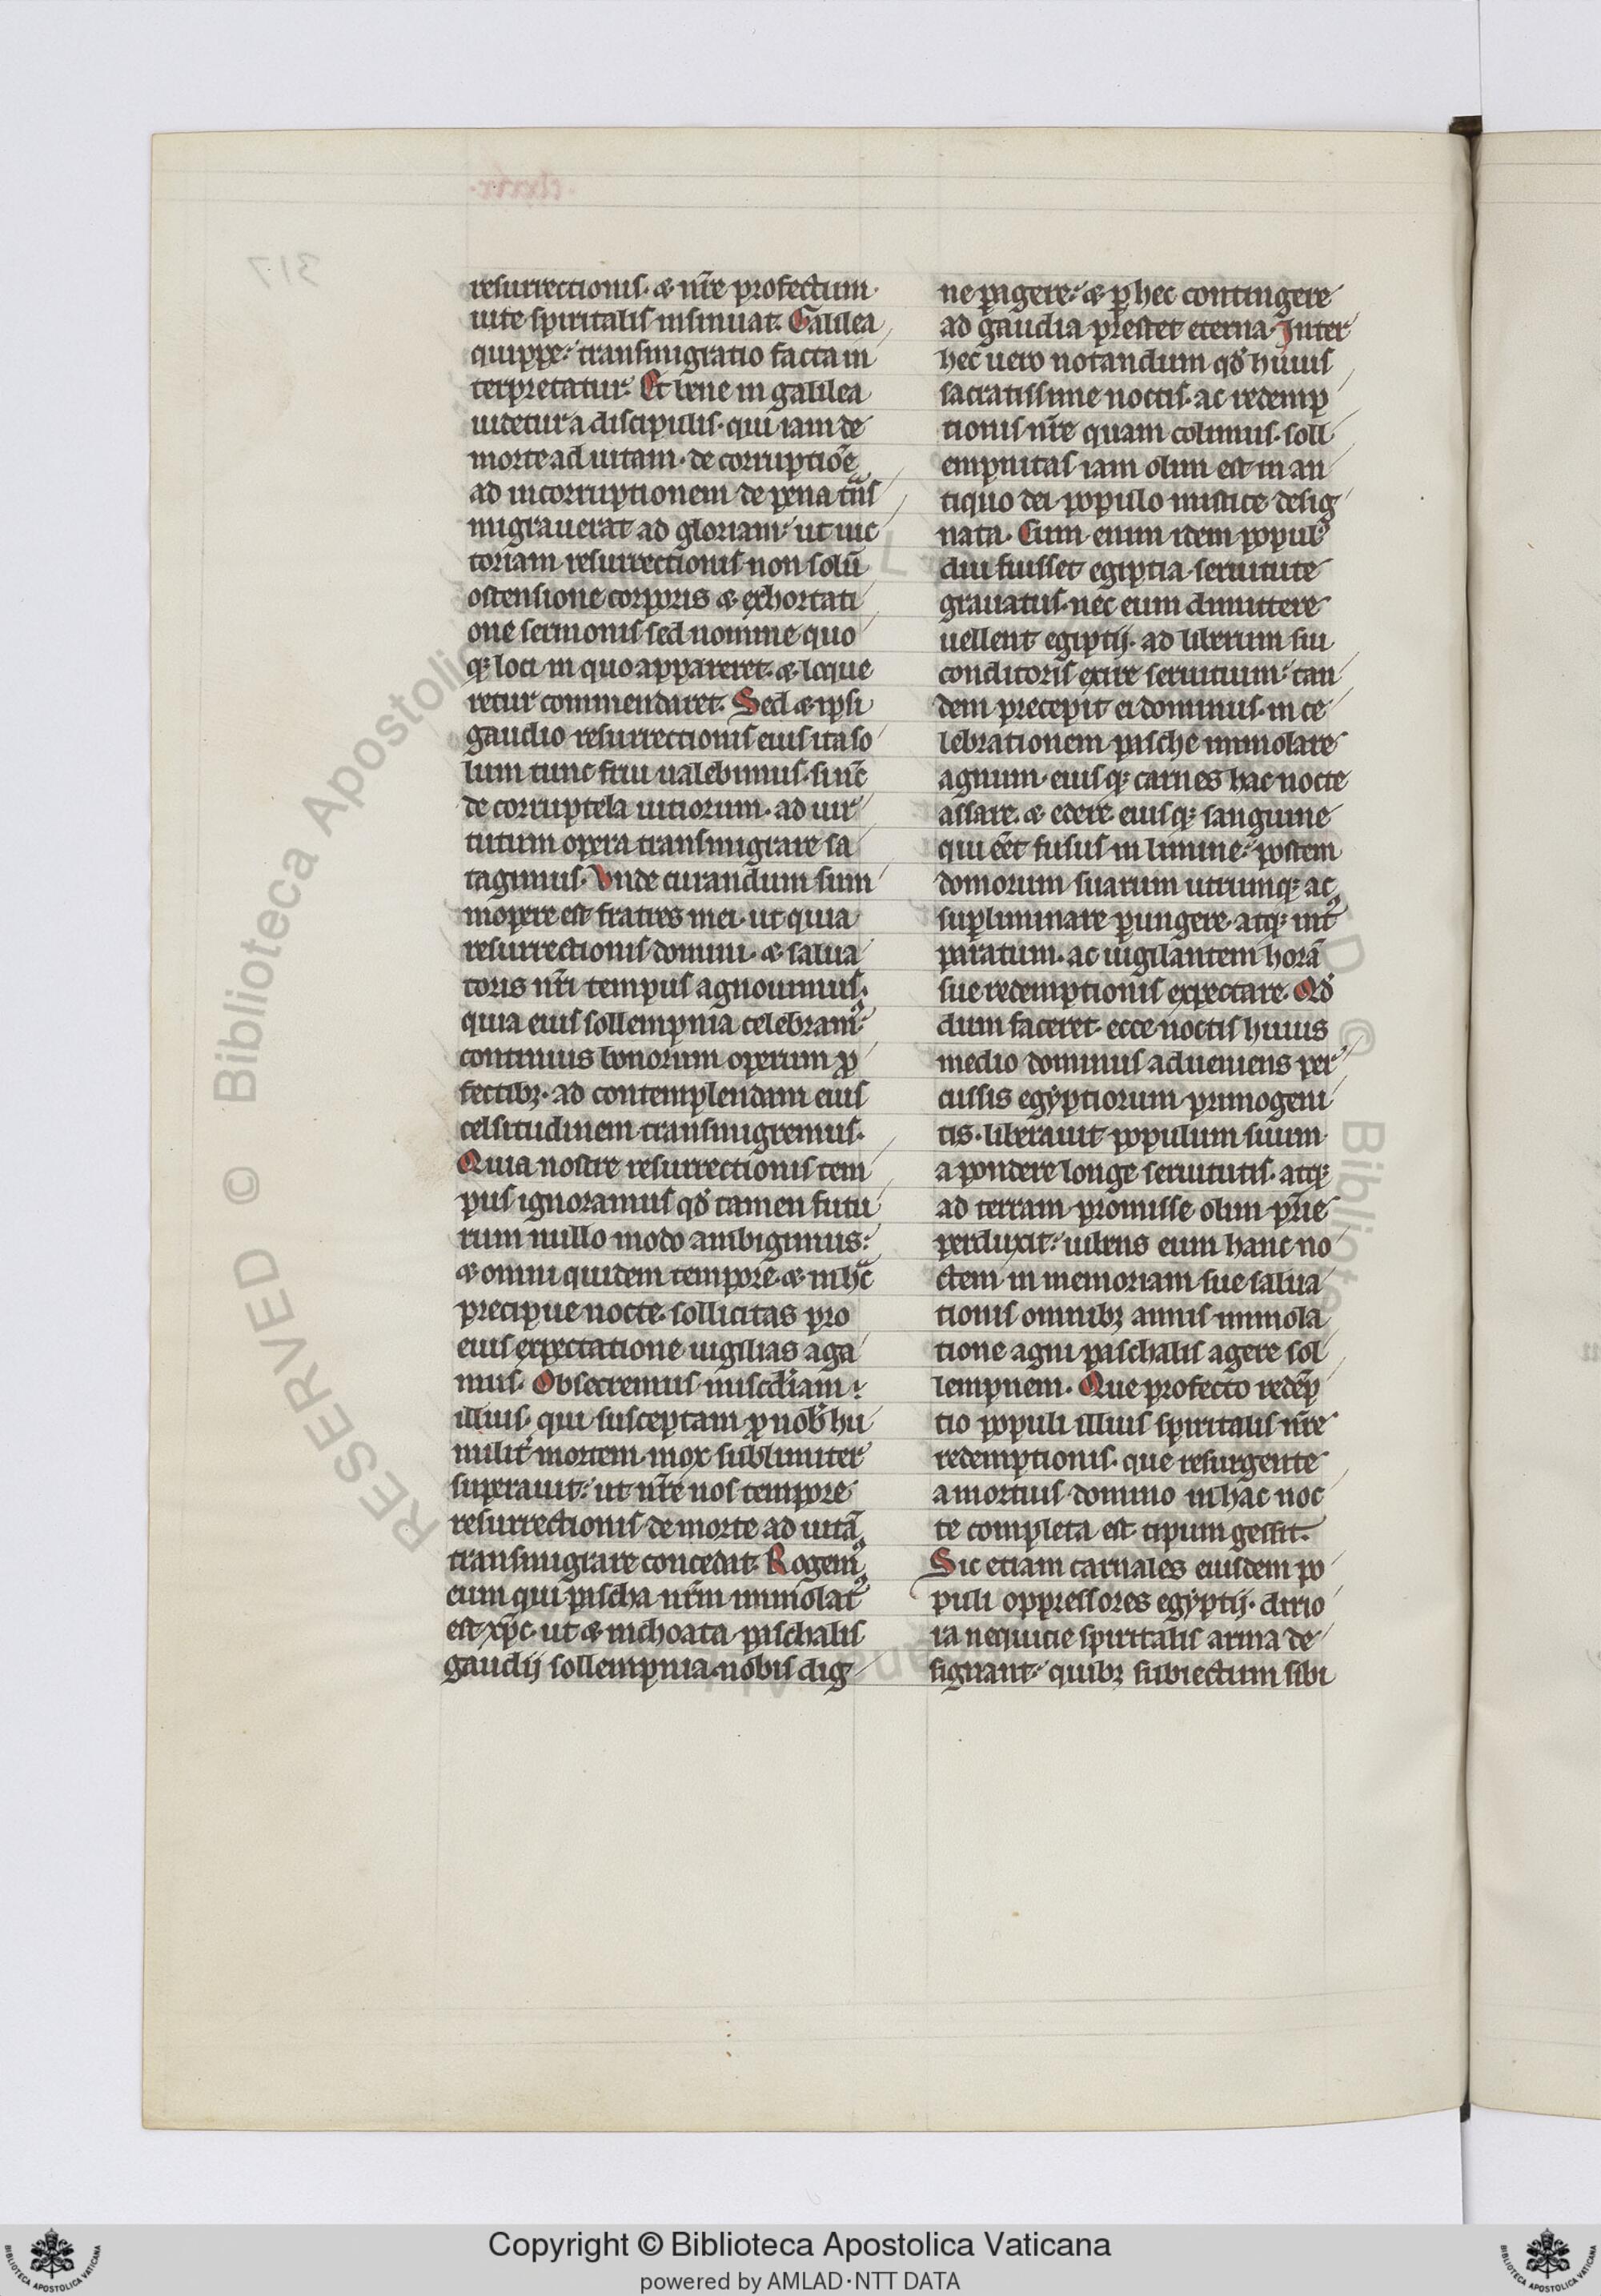 resurrectionis. ⁊ nr̄e profectum
uite spiritalis insinuat. Galilea
quippe: transmigratio facta in
terpretatur. Et bene in galilea
uidetur a discipulis. qui iam de
morte ad uitam. de corruptiōe
ad incorruptionem de pena t̾ns
migrauerat ad gloriam: ut uic
toriam resurrectionis non solū
ostensione corporis ⁊ exhortati
one sermonis sed nomine quo
qꝫ loci in quo appareret. ⁊ loque
retur commendaret. Sed ⁊ ipsi
gaudio resurrectionis eius ita so
lum tunc frui ualebimus. si nūc
de corruptela uitiorum. ad uir
tutum opera transmigrare sa
tagimus. Vnde curandum sum
mopere est fratres mei. ut quia
resurrectionis domini. ⁊ salua
toris nr̄i tempus agnouimus.
quia eius sollempnia celebramꝰ:
continuis bonorum operum ꝓ
fectibꝫ. ad contemplendam eius
celsitudinem transmigremus.
Quia nostre resurrectionis tem
pus ignoramus qd̾ tamen futu
rum nullo modo ambigimus:
⁊ omni quidem tempore. ⁊ in hͣc
precipue nocte. sollicitas pro
eius expectatione uigilias aga
mus. Obsecremus misc̄diam
illius. qui susceptam ꝓ nob̾ hu
milit̾ mortem. mox sublimiter
superauit: ut nr̄e nos tempore
resurrectionis de morte ad uitā
transmigrare concedat. Rogemꝰ
eum qui pascha nr̄m immolatꝰ
est xp̄c. ut ⁊ inchoata paschalis
gaudij sollempnia. nobis dig
ne ꝑagere: ⁊ ꝑ hec contingere
ad gaudia prestet eterna. Inter
hec uero notandum qd̾ huius
sacratissime noctis. ac redemp
tionis nr̄e quam colimus. soll
empnitas iam olim est in an
tiquo dei populo mistice desig
nata. Cum enim idem populꝰ
diu fuisset egiptia seruitute
grauatus. nec eum dimittere
uellent egiptij. ad liberum sui
conditoris exire seruitium: tan
dem precepit ei dominus. in ce
lebrationem pasche immolare
agnum. eiusqꝫ carnes hac nocte
assare. ⁊ edere. eiusqꝫ sanguine
qui eēt fusus in limine: postem
domorum suarum utrumqꝫ ac
suꝑliminare ꝑungere. atqꝫ int̾
paratum. ac uigilantem horā
sue redemptionis expectare. Qd̾
dum faceret. ecce noctis huius
medio dominus adueniens per
cussis egyptiorum primogeni
tis. liberauit populum suum
a pondere longe seruitutis. atqꝫ
ad terram promisse olim pr̄ie
perduxit: iubens eum hanc no
ctem in memoriam sue salua
tionis omnibꝫ annis immola
tione agni paschalis agere sol
lempnem. Que profecto redēp
tio populi illius spiritalis nr̄e
redemptionis. que resurgente
a mortuis domino in hac noc
te completa est tipum gessit.
Sic etiam carnales eiusdem po
puli oppressores egyptij. dirio
ra nequitie spiritalis arma de
signant: quibꝫ subiectum sibi
317
RESERVED © Biblioteca Apostolica
Copyright © Biblioteca Apostolica Vaticana
powered by AMLAD·NTT DATA